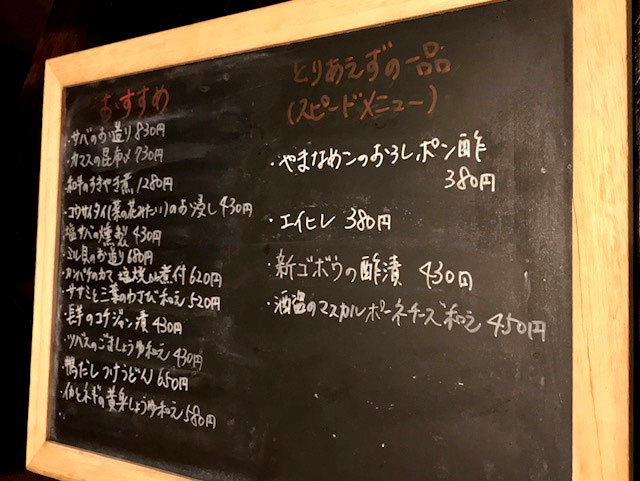 おすすめ
・サバのお造り 830円
・カマスの昆布〆 730円
和牛のすきやき煮 1280円
・コウサイタイ(菜の花みたい!)のお浸し 430円
塩サバの燻製 430円
・ミル貝のお造り 680円
・カンパチのカマ 塩焼 or 煮付 620円
・ササミと三葉のわさび和え 520円
・長芋のコチジャン漬 430円
・ツバスのごましょうゆ和え 430円
・鴨だしつけうどん 650円
・イカとネギの黄身しょうゆ和え 580円
とりあえずの一品
(スピードメニュー)
・やまなめこのおろしポン酢
380円
・エイヒレ 380円
・新ゴボウの酢漬 430円
・酒盗のマスカルポーネチーズ和え 450円